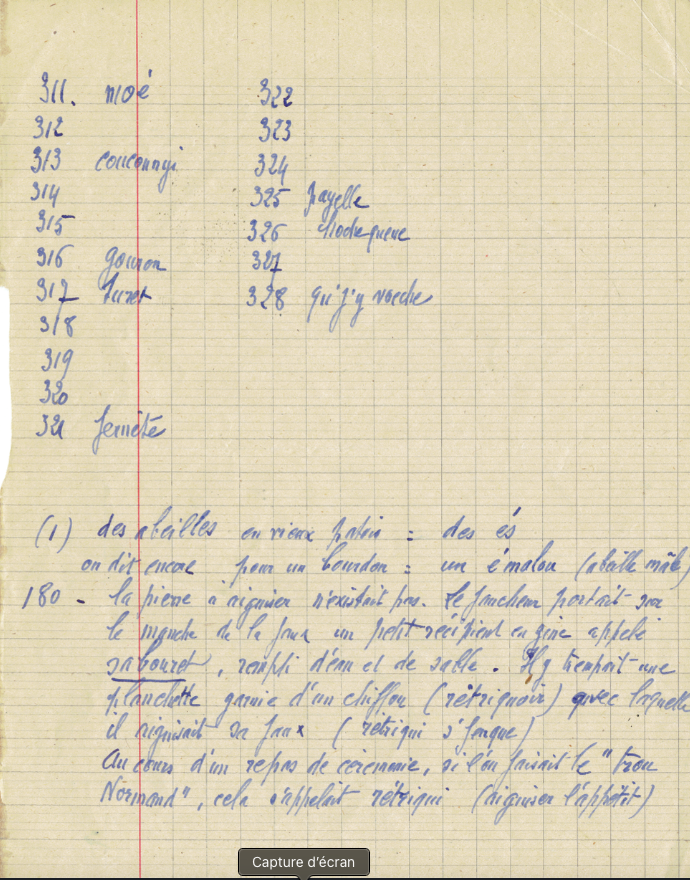 311. moé
312
313 couconnyi
314
315
316 gouron
317 turet
318
319
320
321 fernète
322
323
324
325 payelle
326 hochequeue
327
328 qu'j'y voèche
(1) des abeilles en vieux patois = des és
on dit encore pour un bourdon = un émalou (abeille mâle)
180 - la pierre à aiguiser n'existait pas. Le faucheur portait sur
le manche de la faux un petit récipient en zinc appelé
sabouret, rempli d'eau et de sable. Il y trempait une
planchette garnie d'un chiffon (rétriguoir) avec laquelle
il aiguisait sa faux (rétrigui s'fauque)
Au cours d'un repas de cérémonie, si l'on faisait le "trou
Normand", cela s'appelait rétrigui (aiguiser l'appétit)
Capture d'écran